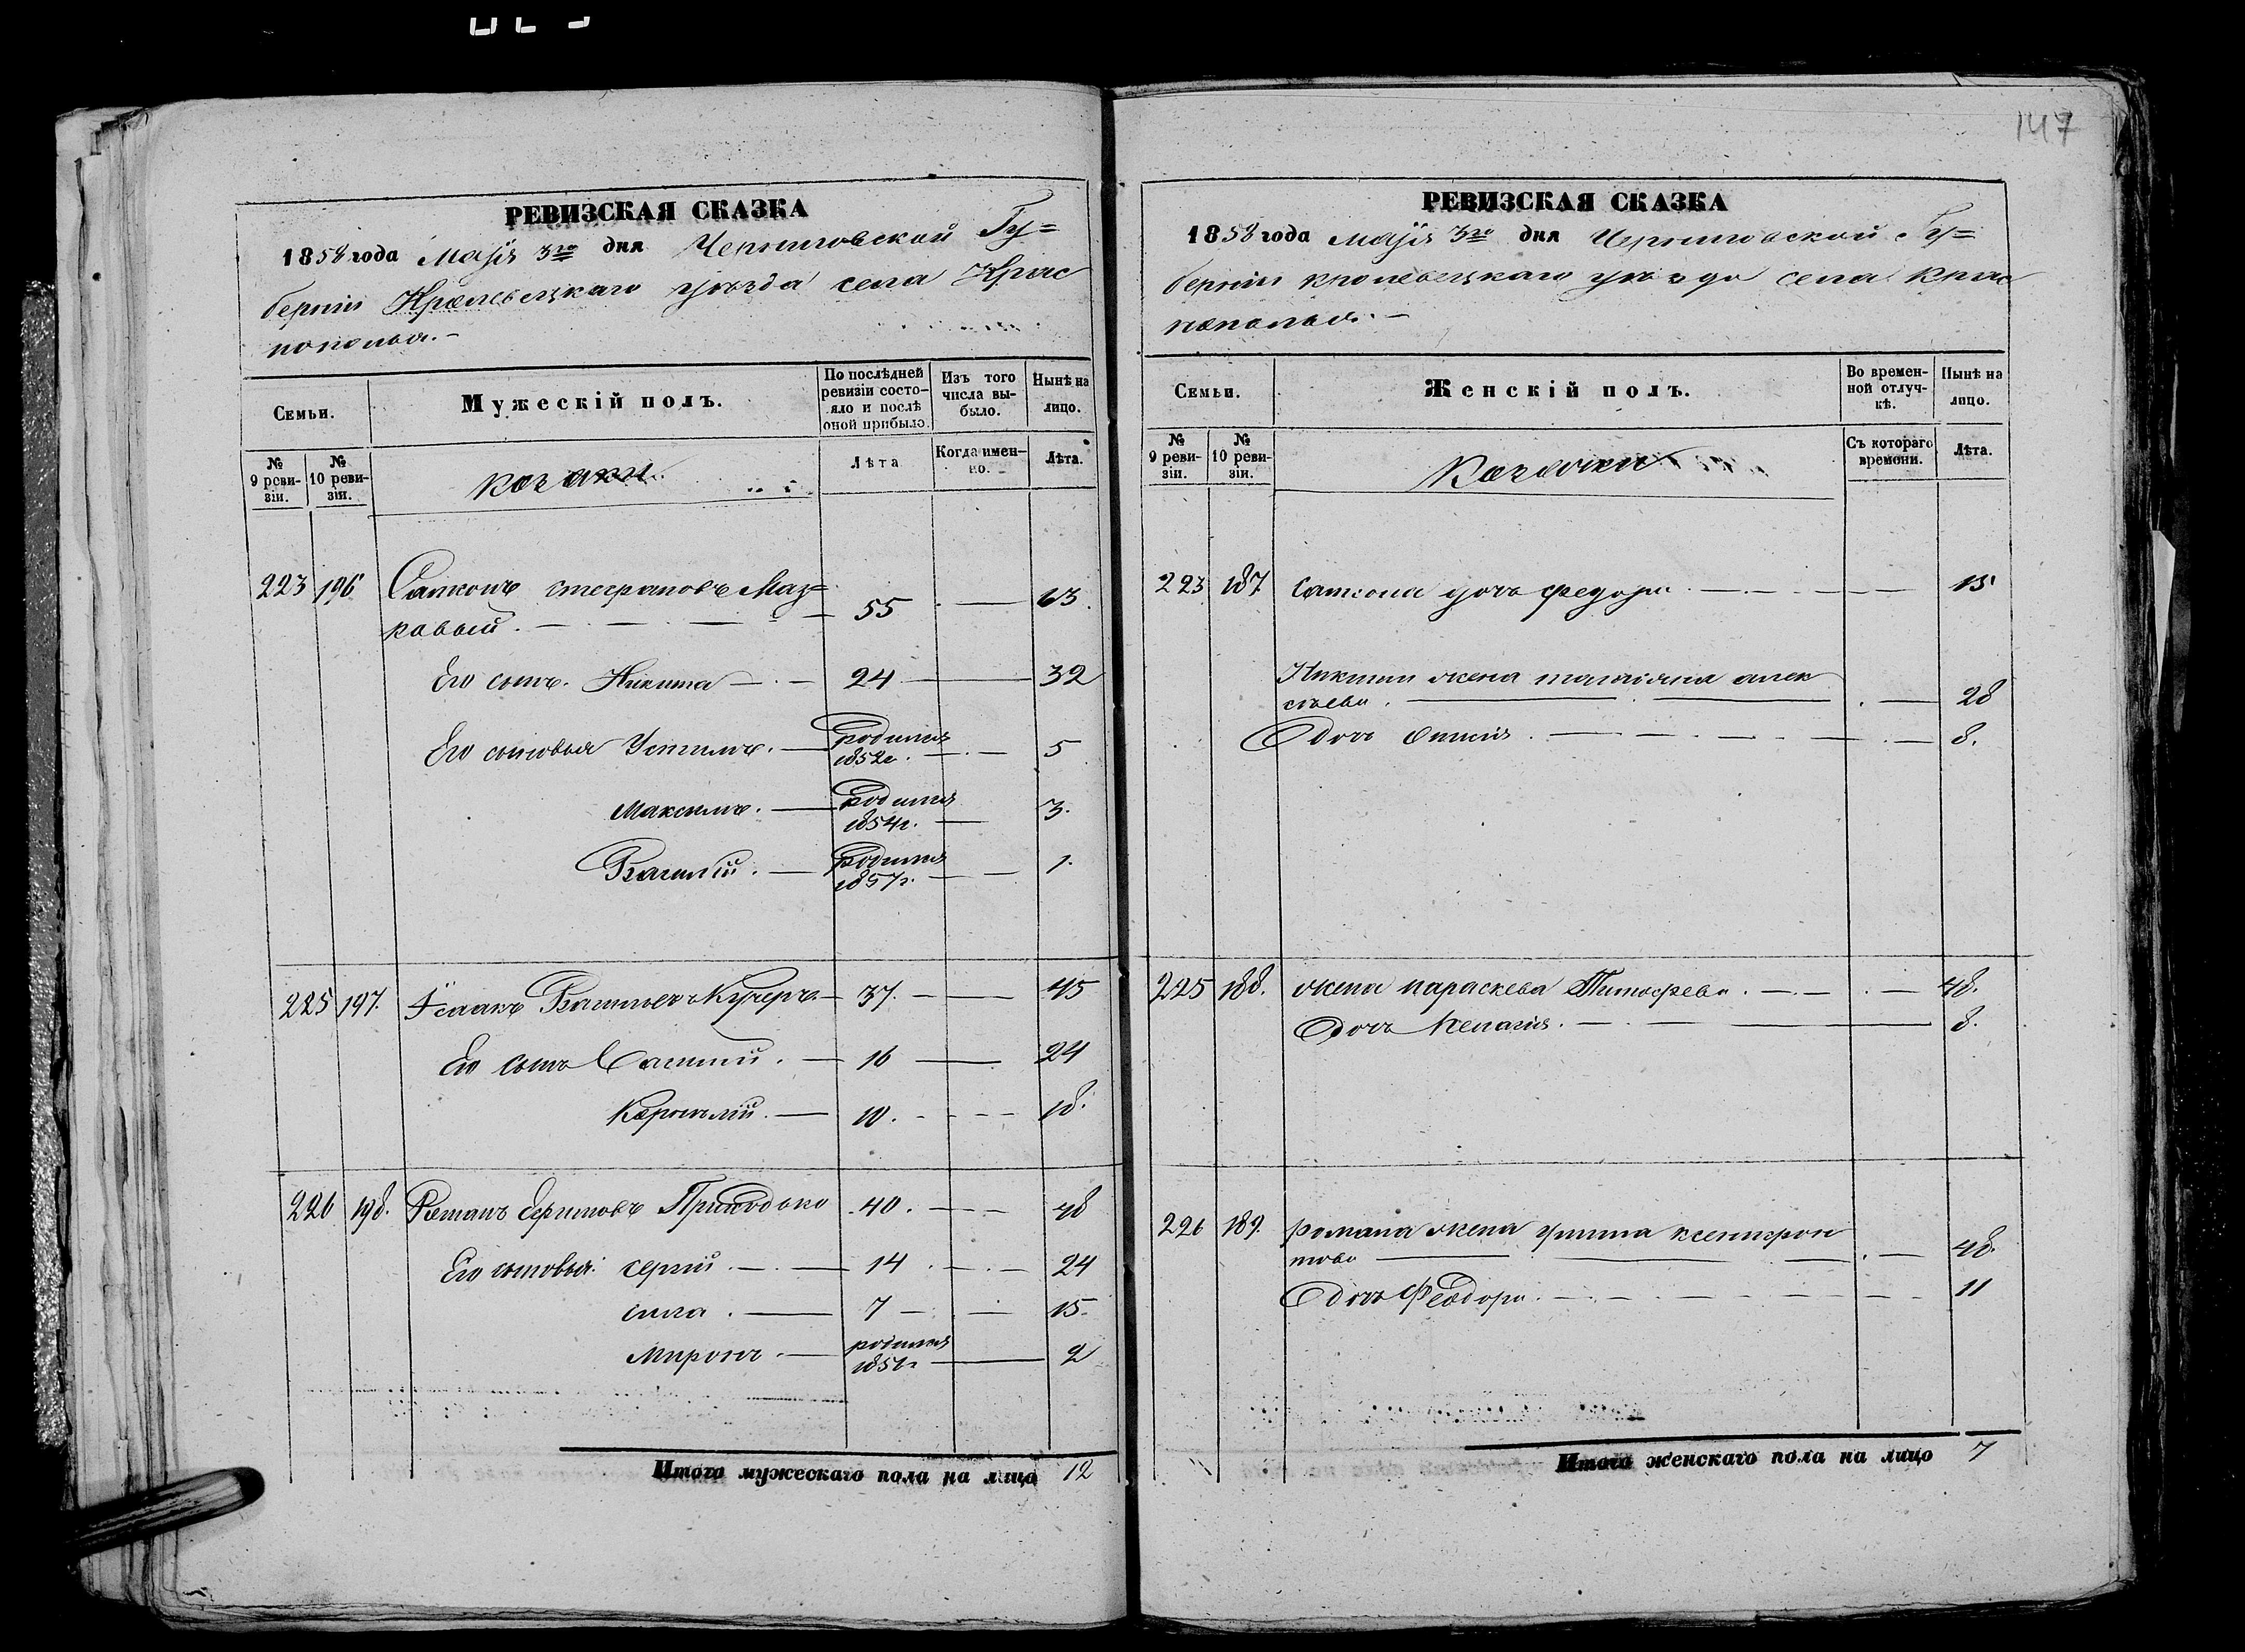 147
РЕВИЗСКАЯ СКАЗКА
1858 года Маія 3го дня Черниговской Гу=
берніи Кролевецкаго уѣзда села Крас
нополья.
Семьи.
Мужескій полъ.
По послѣдней ревизіи состо-яло и послѣ оной прибыло.
Изъ того числа вы-было.
Нынѣ на лицо.
№ 9 реви-зіи.
№ 10 реви-зіи.
козаки
Лѣта
Когда имен-но.
Лѣта.
223 196 степановъ Маз=
ковый. 55 63.
Его сынъ. Никита 24 32
Его сыновья Устимъ. родился 1852г. 5
Максимъ. родился 1854г. 3.
Василій. родился 1857г. 1.
225 197. Ісаакъ Васильевъ Кучеръ 37. 45
Его сынъ Василий. 16 24
Корнилій. 10. 18.
226 198. Романъ Ефимовъ Приходько 40. 48
Его сыновья: сергій 14 24
сила. 7 15.
Миронъ. родился 2
Итого мужескаго пола на лицо 12
РЕВИЗСКАЯ СКАЗКА
1858 года маія 3го дня Черниговской Гу=
берніи кролевецкаго уѣзда села Крас
нополья.
Семьи.
Женскій полъ.
Во времен-ной отлуч-кѣ.
Нынѣ на лицо.
№ 9 реви-зіи.
№ 10 реви-зіи.
Козачки
Съ котораго времени.
Лѣта.
223 187 дочь федора 15
Никиты жена татьяна алек
сѣева. 28
дочь 8.
225 188. жена параскева Тимофева. 48.
дочь Пелагія. 8.
226 189. романа жена ксенофон
това 48.
дочь Феодора. 11
Итого женскаго пола на лицо 7